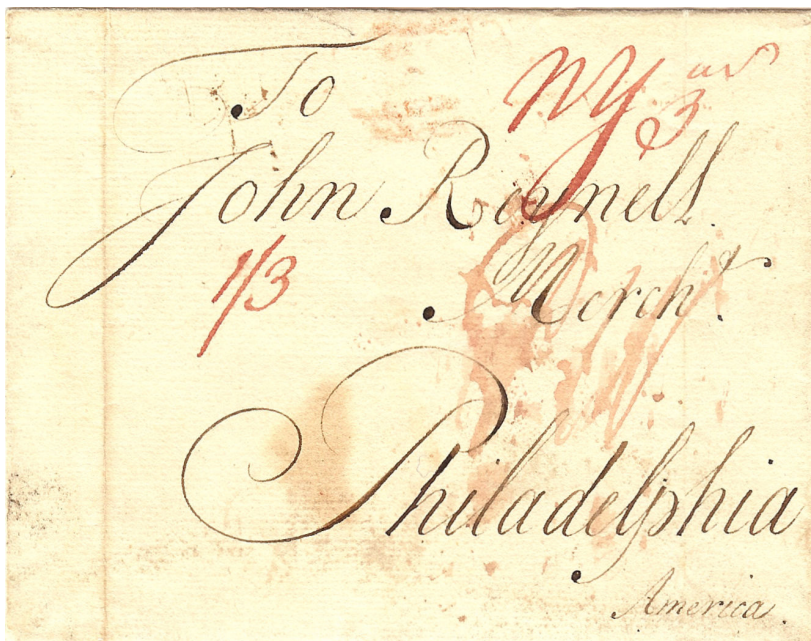 To
NY 3
John Reynell
Mercht.
1/3
Philadelphia
America.